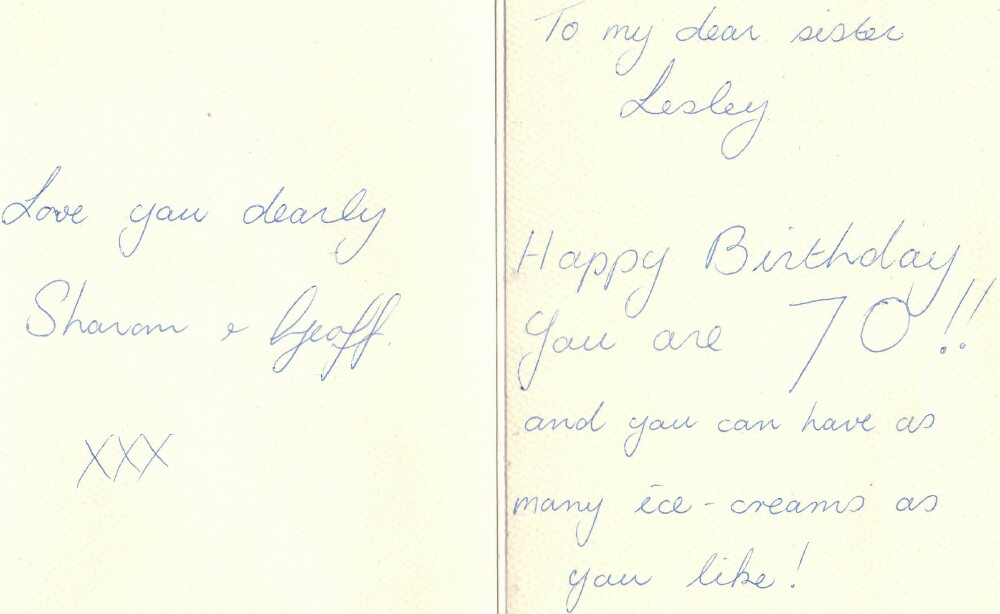 Love you dearly
Sharon & Geoff.
XXX
To my dear sister
Lesley
Happy Birthday
You are 70!!
and you can have as
many ice-creams as
you like!